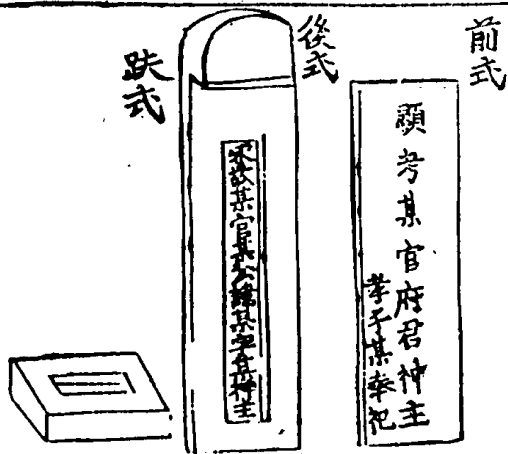 前式
顯考某官府君神主
孝子某奉祀
後式
宋故某官某公諱某字某神主
趺式